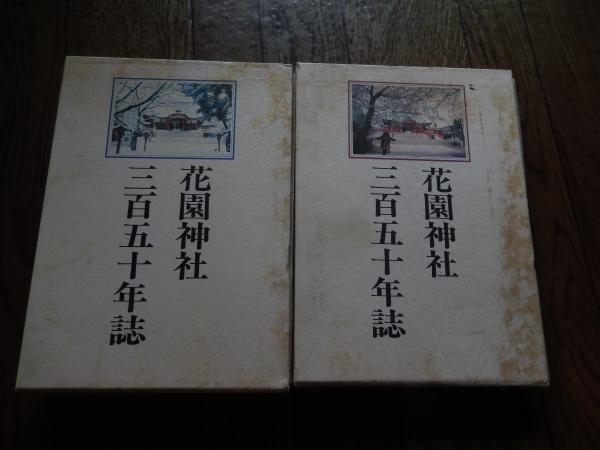 花園神社
三百五十年誌
花園神社
三百五十年誌